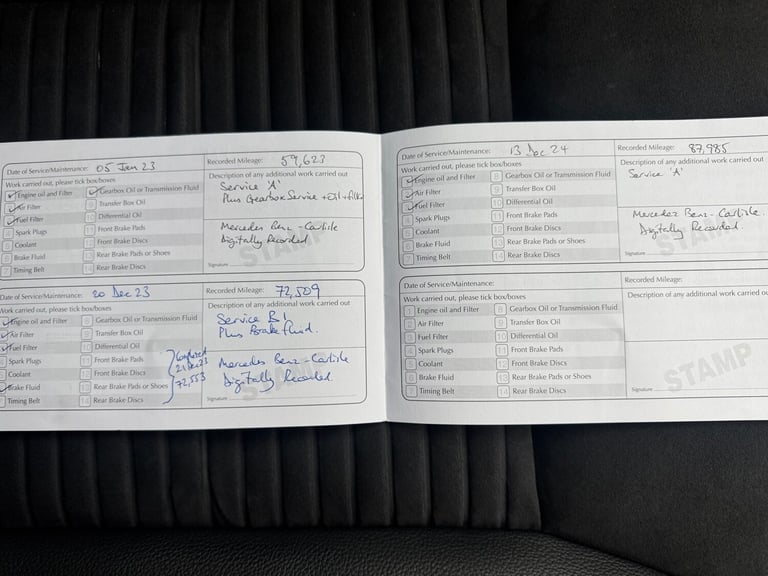 Date of Service/Maintenance: 05 Jan 23
Recorded Mileage: 59,623
Work carried out, please tick box/boxes
Description of any additional work carried out
Engine oil and Filter
8 Gearbox Oil or Transmission Fluid
Air Filter
9 Transfer Box Oil
Fuel Filter
10 Differential Oil
4 Spark Plugs
11 Front Brake Pads
5 Coolant
12 Front Brake Discs
6 Brake Fluid
13 Rear Brake Pads or Shoes
7 Timing Belt
14 Rear Brake Discs
Service 'A'
Plus Gearbox Service + Oil + Filter
Mercedes Benz - Carlisle
Digitally Recorded
STAMP
Signature
Date of Service/Maintenance: 20 Dec 23
Recorded Mileage: 72,509
Work carried out, please tick box/boxes
Description of any additional work carried out
Engine oil and Filter
8 Gearbox Oil or Transmission Fluid
Air Filter
9 Transfer Box Oil
Fuel Filter
10 Differential Oil
Spark Plugs
11 Front Brake Pads
Coolant
12 Front Brake Discs
Brake Fluid
13 Rear Brake Pads or Shoes
Timing Belt
14 Rear Brake Discs
72,553
Service B1
Plus Brake fluid.
Mercedes Benz - Carlisle
Digitally Recorded.
STAMP
Signature
Date of Service/Maintenance: 13 Dec 24
Recorded Mileage: 87,985
Work carried out, please tick box/boxes
Description of any additional work carried out
Engine oil and Filter
8 Gearbox Oil or Transmission Fluid
Air Filter
9 Transfer Box Oil
Fuel Filter
10 Differential Oil
4 Spark Plugs
11 Front Brake Pads
5 Coolant
12 Front Brake Discs
6 Brake Fluid
13 Rear Brake Pads or Shoes
7 Timing Belt
14 Rear Brake Discs
Service 'A'
Mercedes Benz - Carlisle.
Digitally Recorded.
STAMP
Signature
Date of Service/Maintenance:
Recorded Mileage:
Work carried out, please tick box/boxes
Description of any additional work carried
1 Engine oil and Filter
8 Gearbox Oil or Transmission Fluid
2 Air Filter
9 Transfer Box Oil
3 Fuel Filter
10 Differential Oil
4 Spark Plugs
11 Front Brake Pads
5 Coolant
12 Front Brake Discs
6 Brake Fluid
13 Rear Brake Pads or Shoes
7 Timing Belt
14 Rear Brake Discs
STAMP
Signature